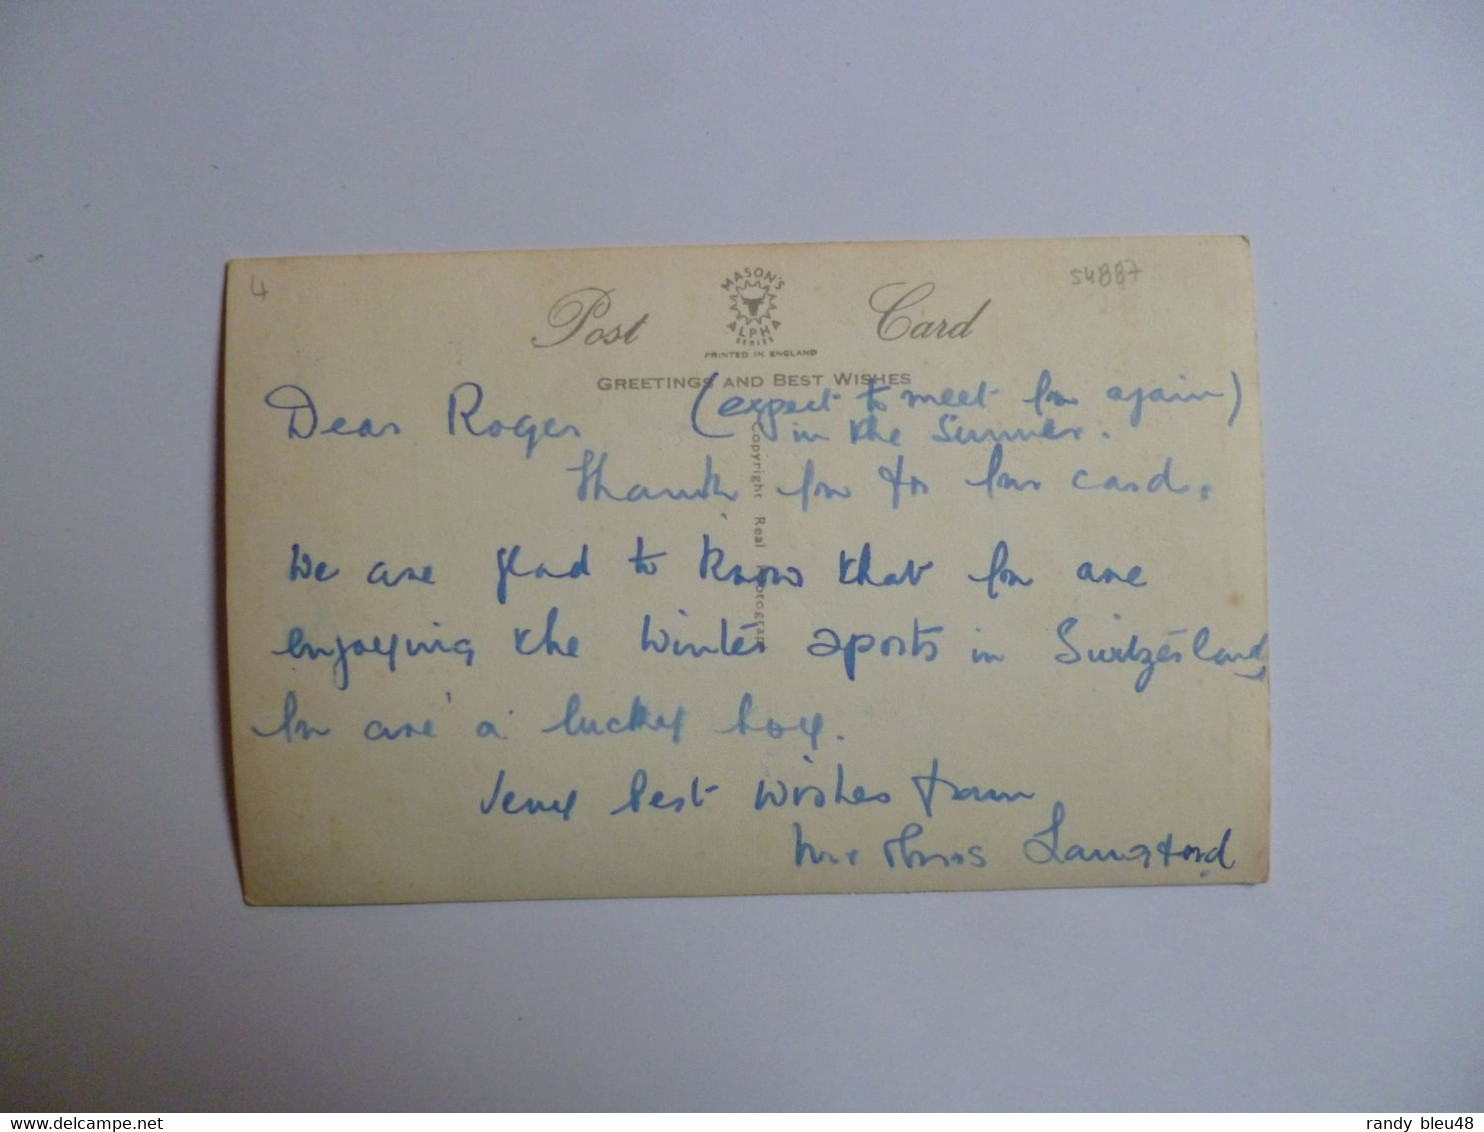 4
54887
Post Card
MASON'S
ALPHA
SERIES
PRINTED IN ENGLAND
GREETINGS AND BEST WISHES
Dear Roger (expect to meet you again)
in the Summer.
Thank you for your card.
We are glad to know that you are
enjoying the Winter sports in Switzerland
You are a lucky boy.
Very best wishes from
Mr & Mrs Langford
Copyright Real Photograph
randy_bleu48